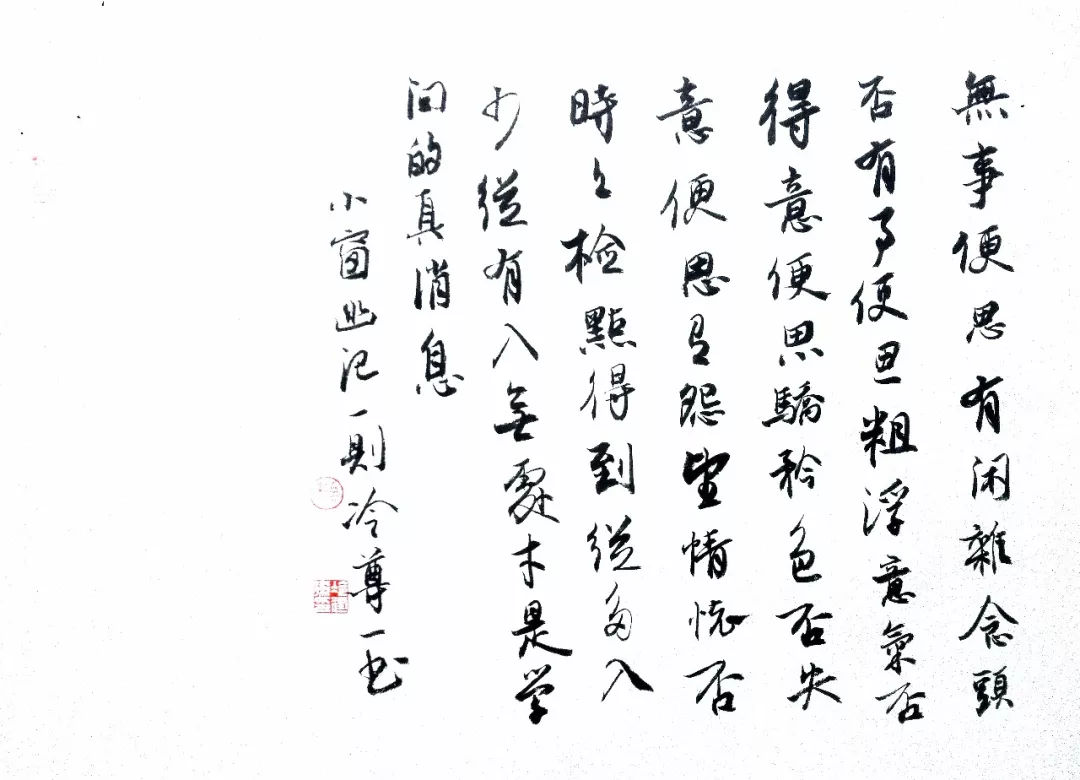 無事便思有闲雜念頭
否有事便思粗浮意氣否
得意便思驕矜色否失
意便思有怨望情怀否
時々檢點得到從多入
少從有入無處才是学
问的真消息
小窗幽记一則冷尊一书